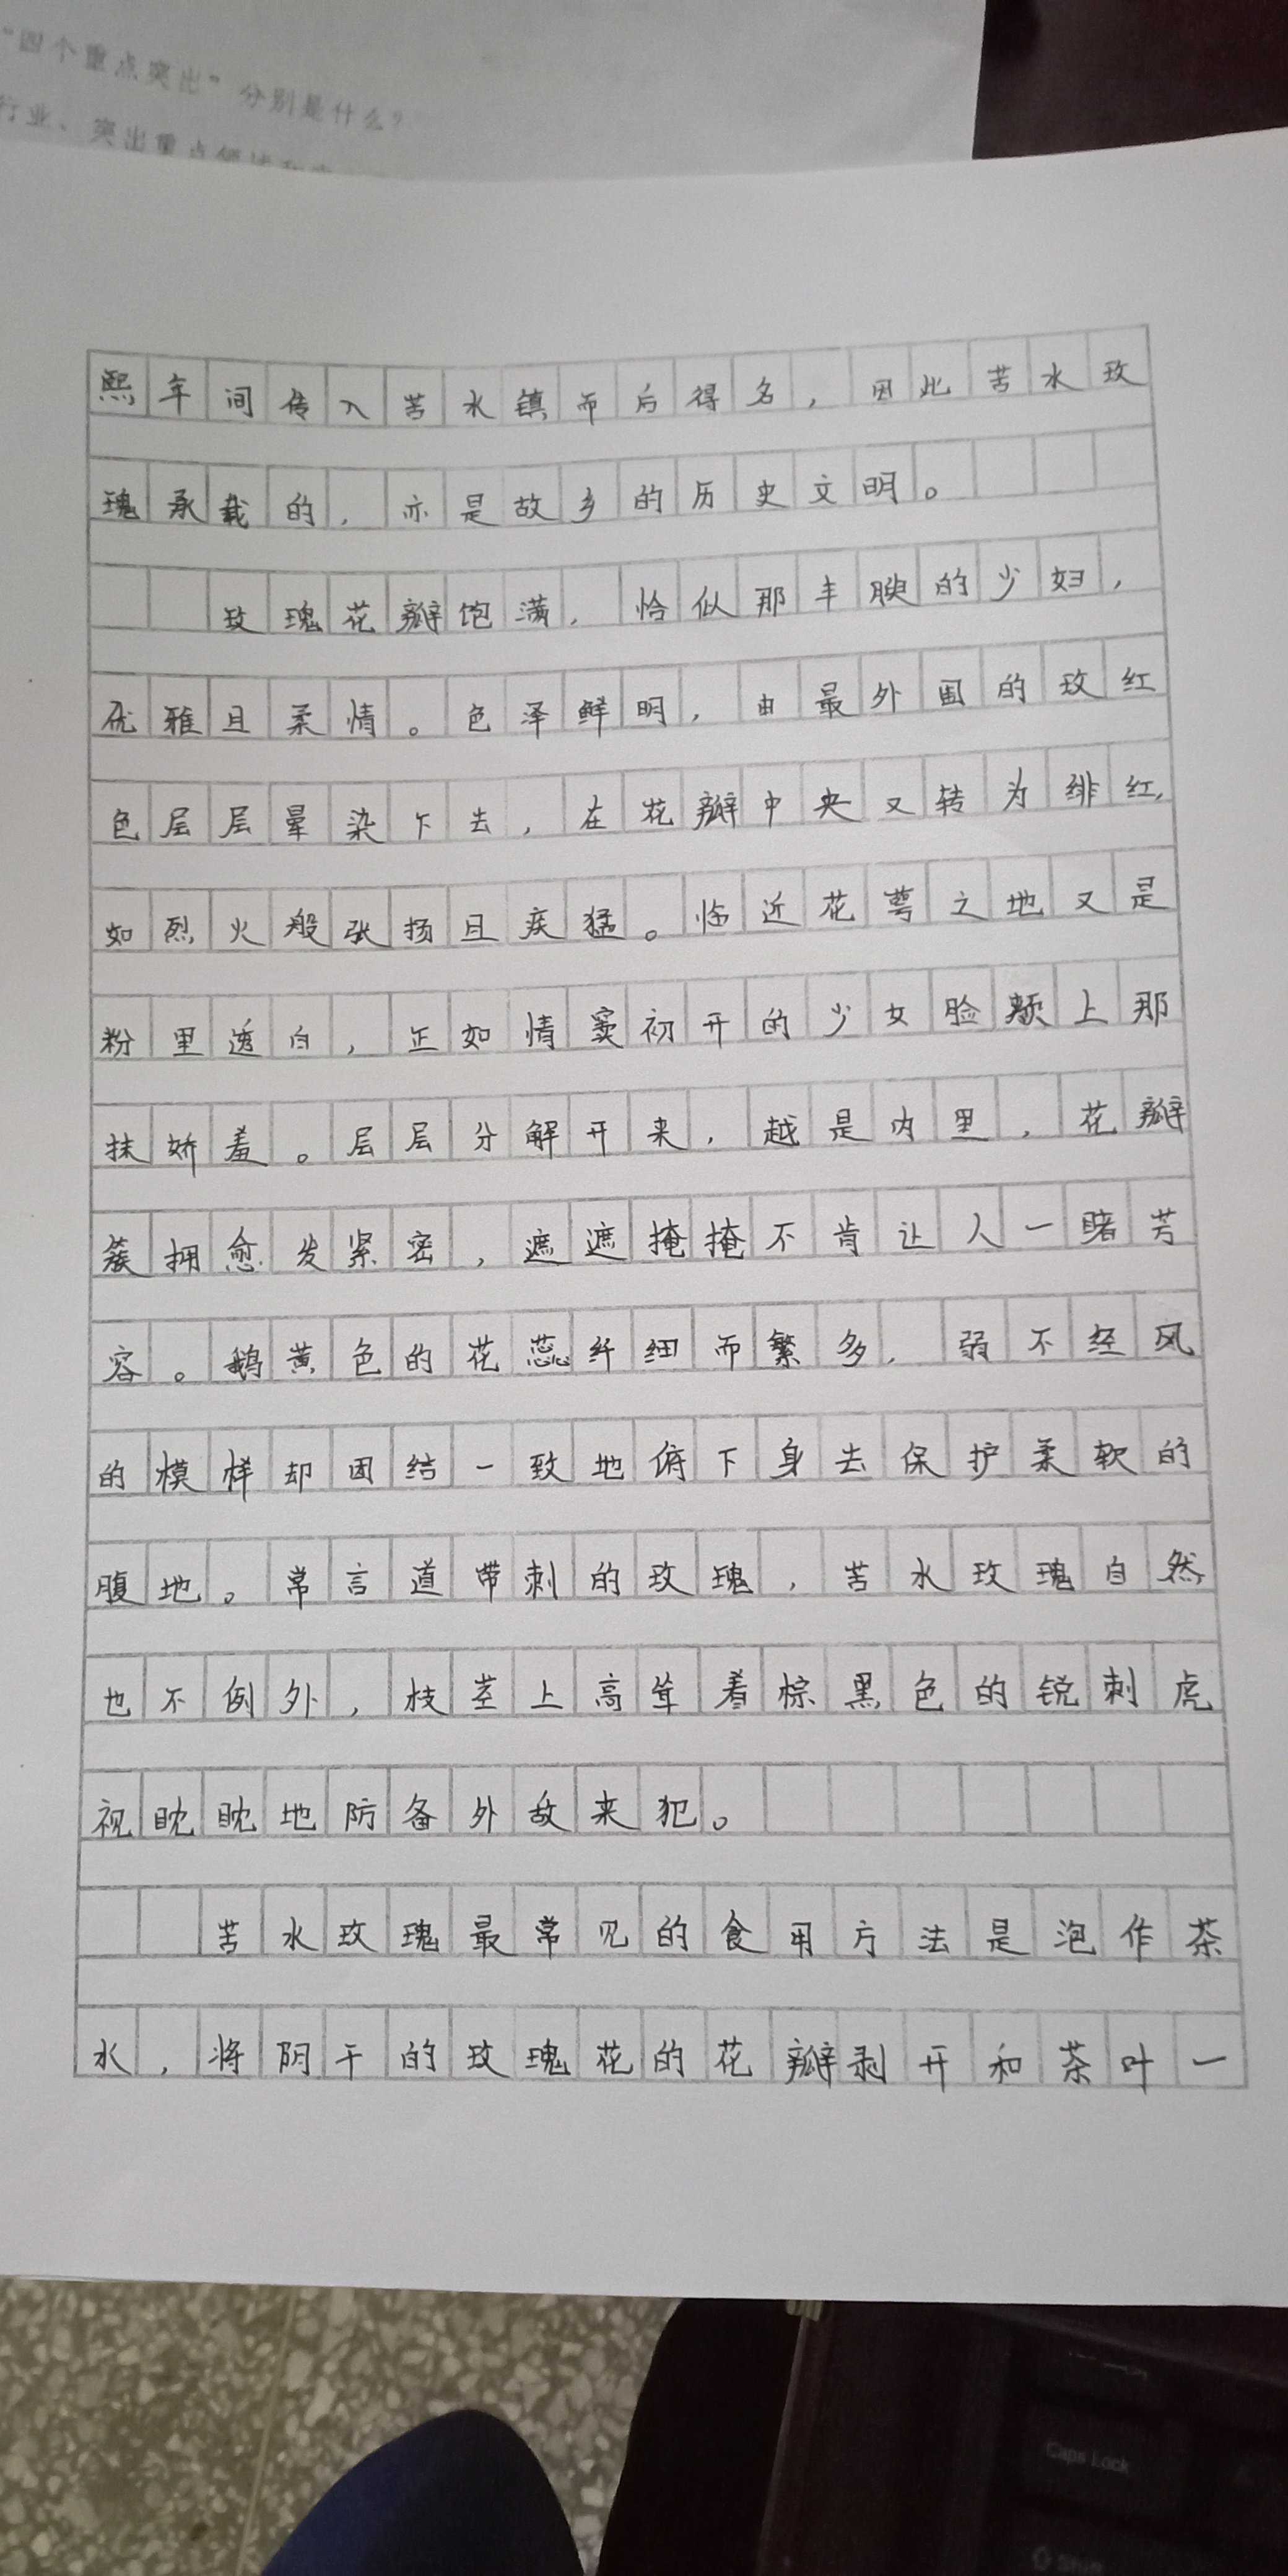 “四个重点突出”分别是什么？
行业、突出重点领域和
熙年间传入苦水镇而后得名，因此苦水玫
瑰承载的，亦是故乡的历史文明。
玫瑰花瓣饱满，恰似那丰腴的少妇，
优雅且柔情。色泽鲜明，由最外围的玫红
色层层晕染下去，在花瓣中央又转为绯红，
如烈火般张扬且疾猛。临近花萼之地又是
粉里透白，正如情窦初开的少女脸颊上那
抹娇羞。层层分解开来，越是内里，花瓣
簇拥愈发紧密，遮遮掩掩不肯让人一睹芳
容。鹅黄色的花蕊纤细而繁多，弱不经风
的模样却团结一致地俯下身去保护柔软的
腹地。常言道带刺的玫瑰，苦水玫瑰自然
也不例外，枝茎上高耸着棕黑色的锐刺虎
视眈眈地防备外敌来犯。
苦水玫瑰最常见的食用方法是泡作茶
水，将阴干的玫瑰花的花瓣剥开和茶叶一
Caps Lock
Shift